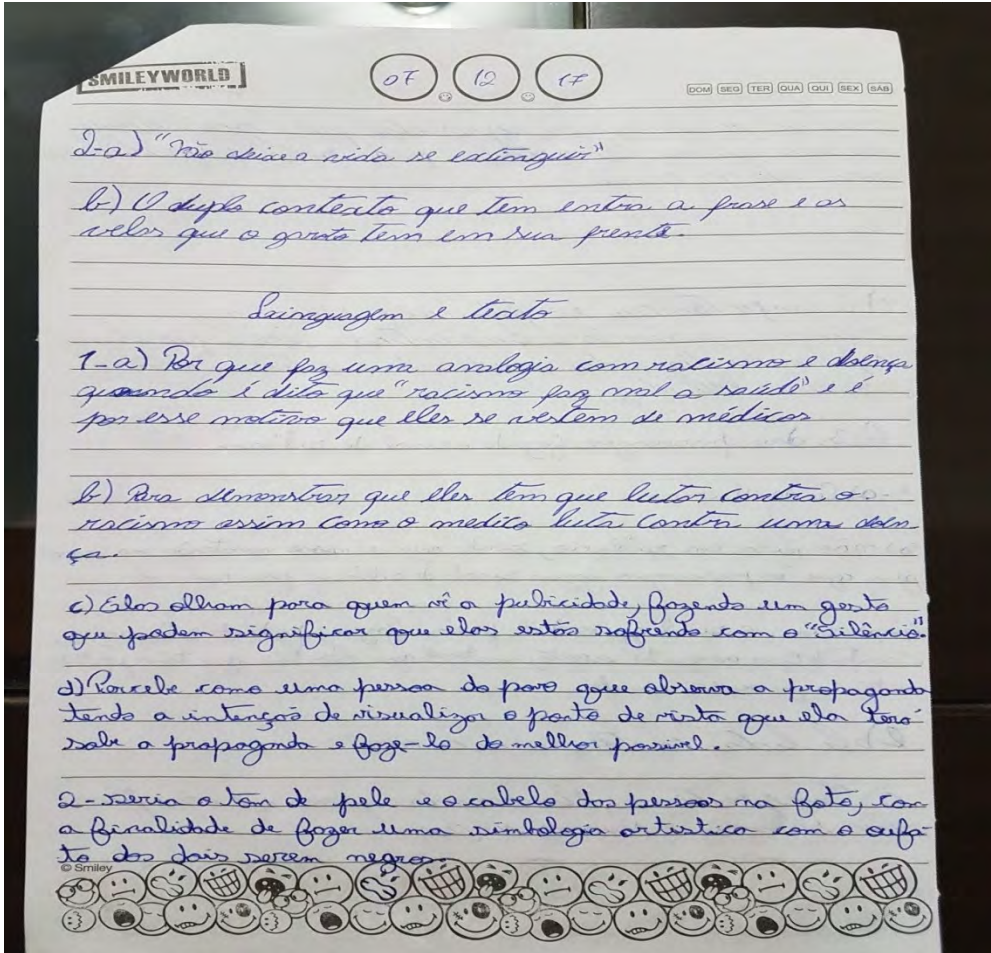 SMILEYWORLD
07 12 17
DOM SEG TER QUA QUI SEX SÁB
2-a) "Não deixe a vida se extinguir"
b) O duplo contexto que tem entra a frase e as
velas que o garoto tem em sua frente.
Lainguagem e texto
1-a) Por que faz uma analogia com racismo e doença
quando é dito que "racismo faz mal a saúde" e é
por esse motivo que eles se vestem de médicos
b) Para demonstrar que eles têm que lutar contra o
racismo assim como o medico luta contra uma doen
ça.
c) Elas olham para quem vê a pubicidade, fazendo um gesto
que podem significar que elas estão sofrendo com o "Silêncio".
d) Percebe como uma pessoa do povo que observa a propaganda
tendo a intenção de visualizar o ponto de vista que ela terá
sobe a propaganda e faze-lo do melhor possivel.
2-seria o tom de pele e o cabelo das pessoas na foto, com
a finalidade de fazer uma simbologia artistica com o
to dos dois serem negros.
© Smiley